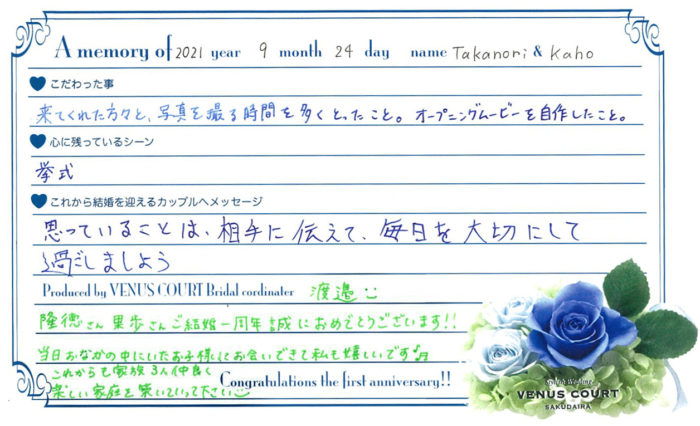 A memory of 2021 year 9 month 24 day name Takanori & Kaho
こだわった事
来てくれた方々と、写真を撮る時間を多くとったこと。オープニングムービーを自作したこと。
心に残っているシーン
挙式
これから結婚を迎えるカップルへメッセージ
思っていることは、相手に伝えて、毎日を大切にして
過ごしましょう
Produced by VENUS COURT Bridal cordinater 渡邉
隆徳さん 果歩さんご結婚一周年誠におめでとうございます!!
当日おなかの中にいたお子様にお会いできて私も嬉しいです♪
これからも家族3人仲良く
楽しい家庭を築いていって下さい
Congratulations the first anniversary!!
Stylish Wedding
VENUS COURT
SAKUDAIRA